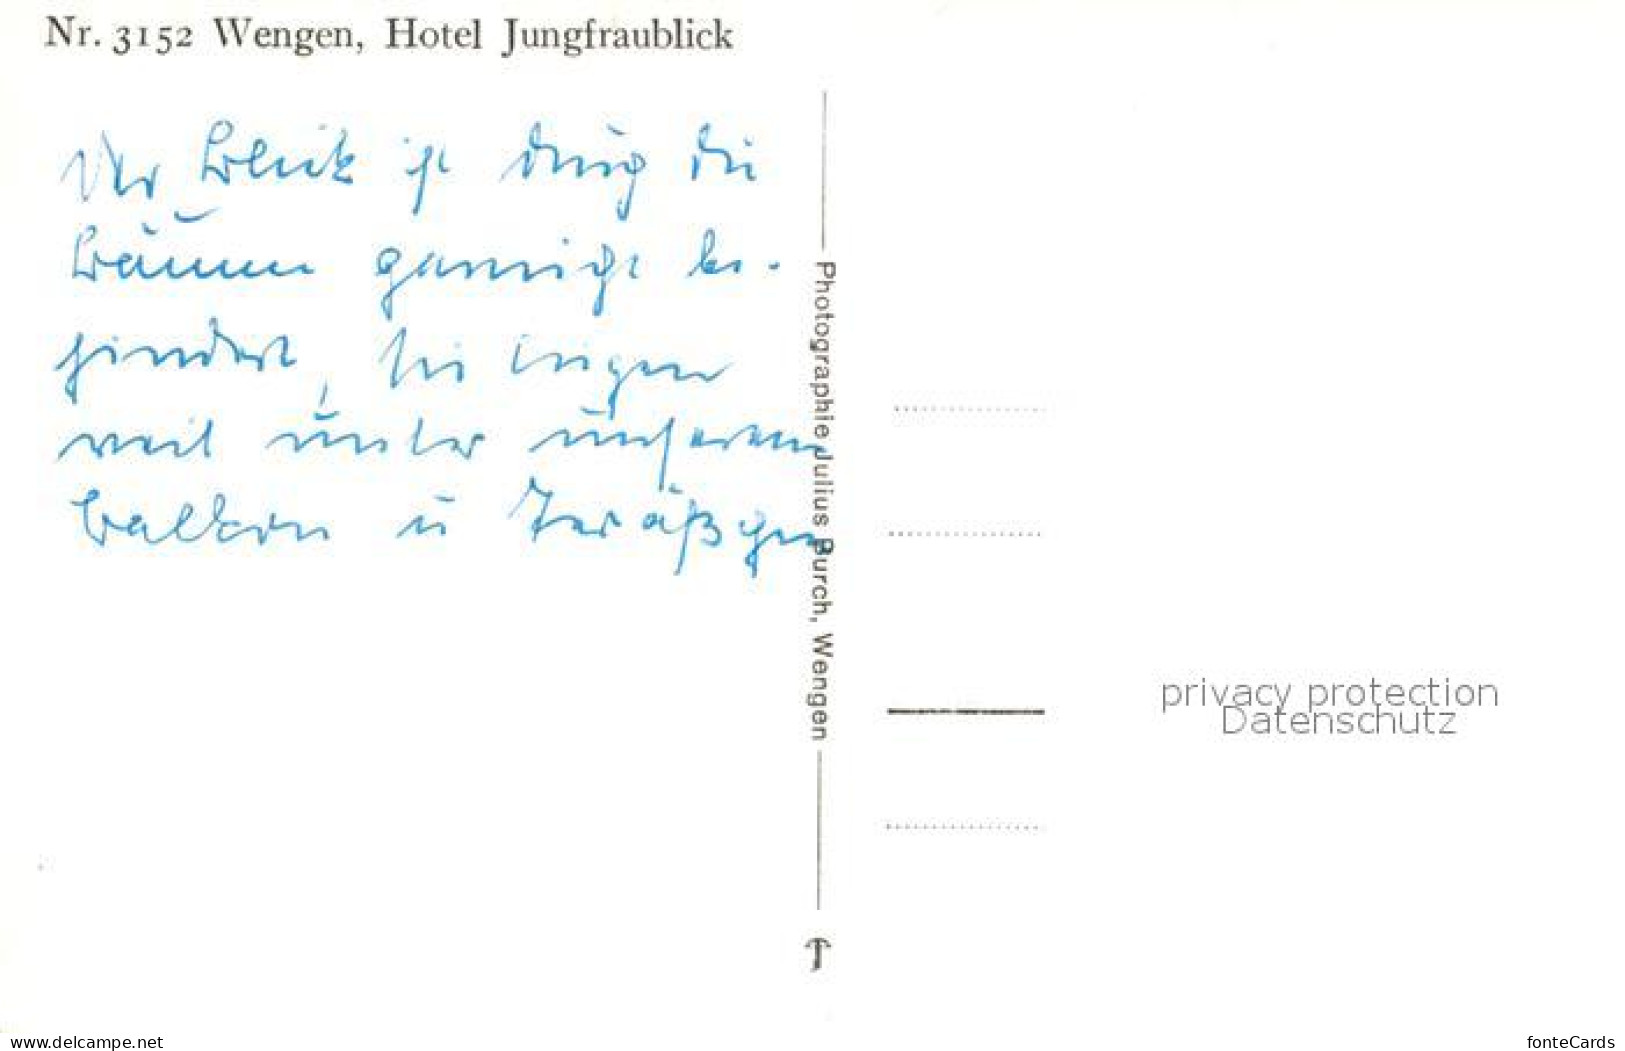 Nr. 3152 Wengen, Hotel Jungfraublick
Der Blick ist durch die
Bäume garnicht be-
hindert, sie liegen
weit unter unserem
Balkon u Teräßchen
Photographie Julius Burch, Wengen
privacy protection
Datenschutz
www.delcampe.net
fonteCards